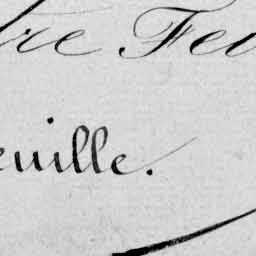 tre Feu
euille.